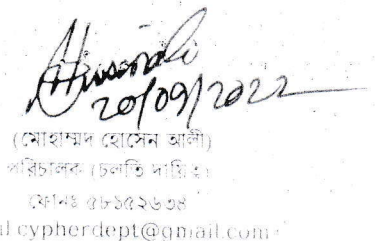 Hussain Ali
20/09/2022
(মোহাম্মদ হোসেন আলী)
পরিচালক (চলতি দায়িত্ব)
ফোনঃ ৫৮১৫২৬৩৪
al.cypherdept@gmail.com